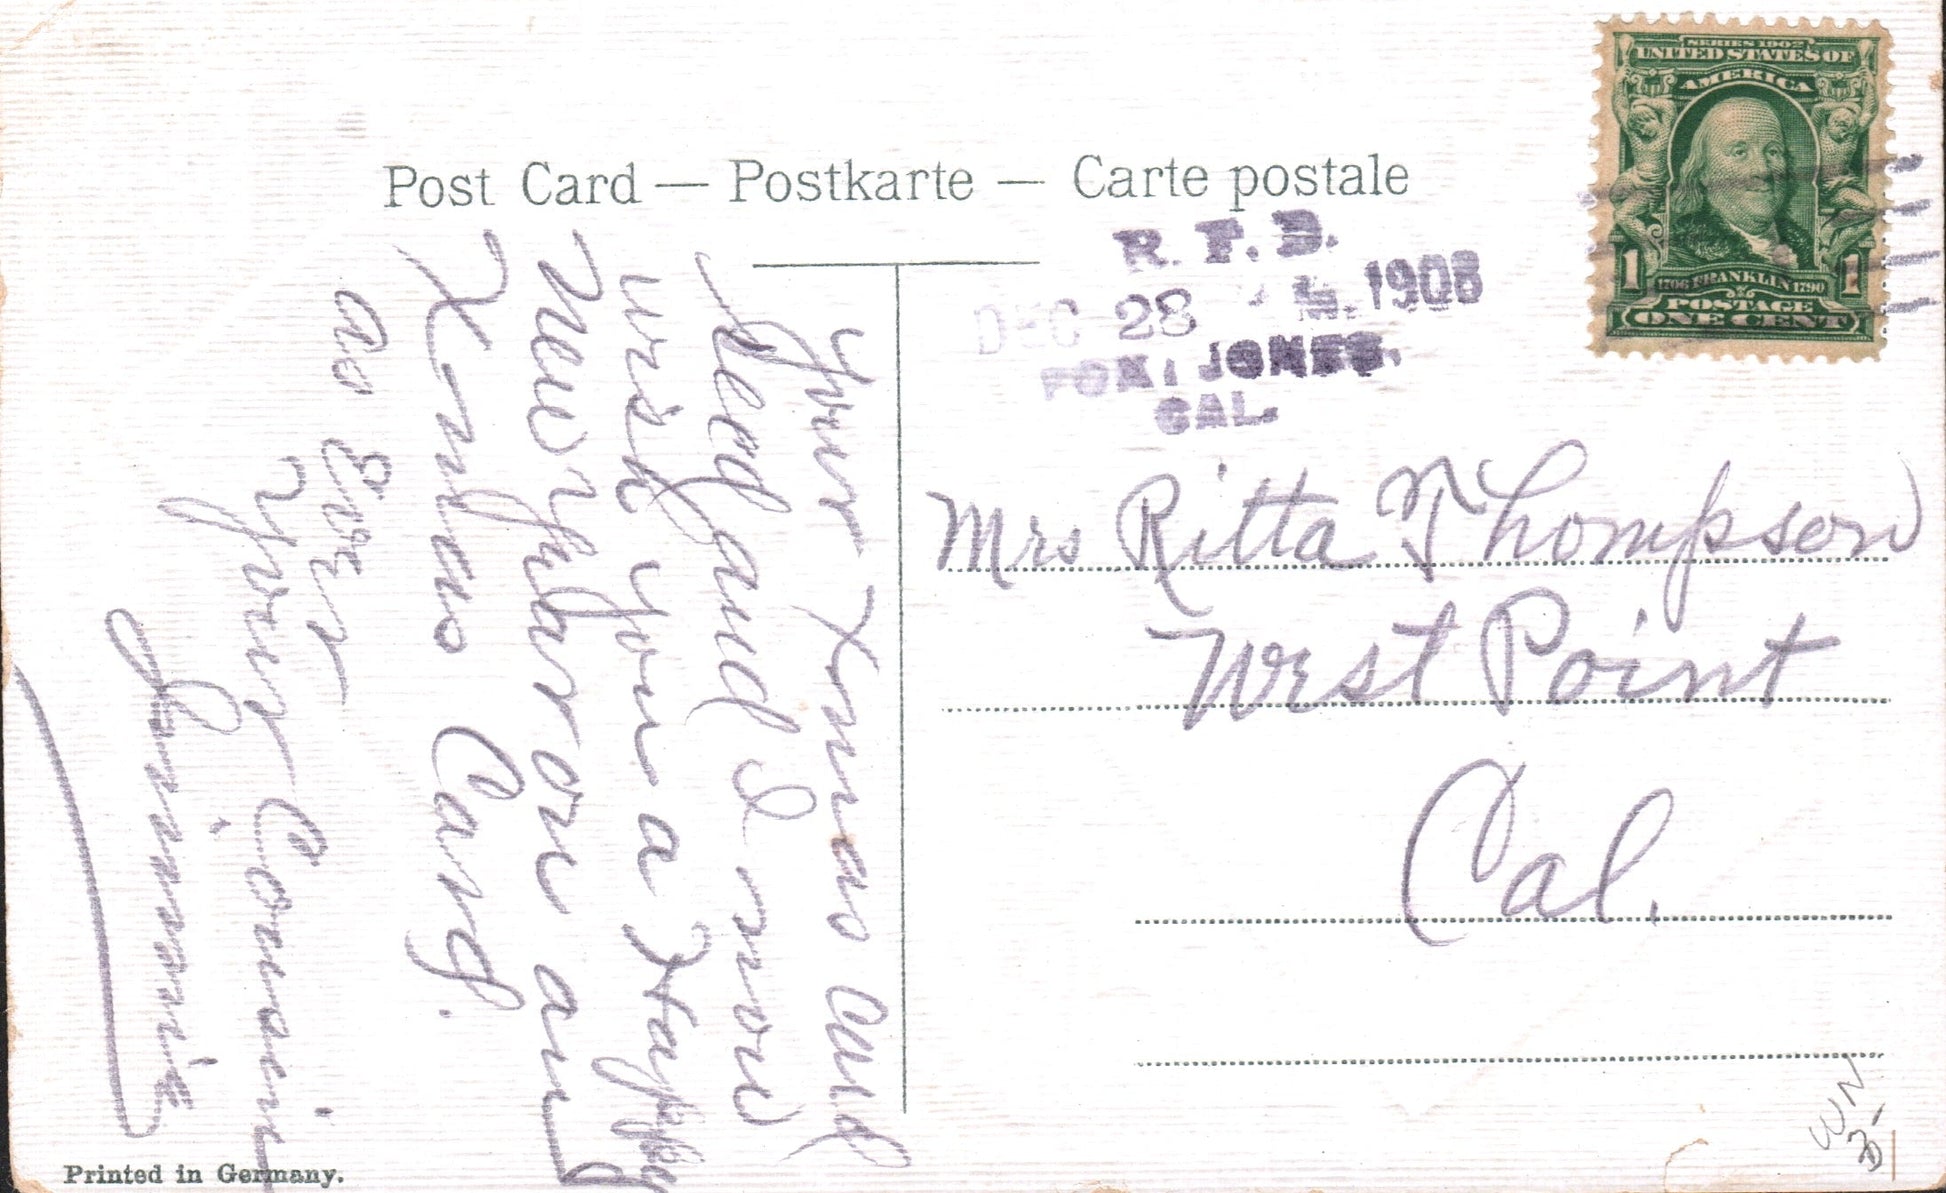 Post Card — Postkarte — Carte postale
SERIES 1902
UNITED STATES OF
AMERICA
1706 FRANKLIN 1790
1 1
POSTAGE
ONE CENT
R. F. D.
DEC 28 M. 1908
JONES.
CAL.
Mrs Ritta N Thompson
West Point
Cal.
Your Xmas Card
Recd and I now
wish you a Happy
New Year on an
Xmas Card.
as Ever
Your Cousin
Jimmie
Printed in Germany.